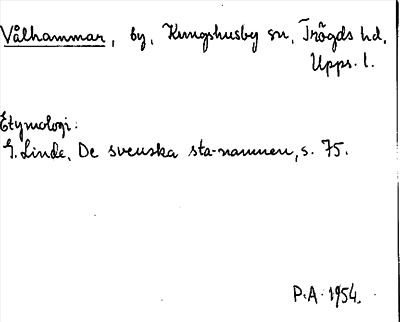 Vålhammar, by, Kungshusby sn, Trögds hd,
Upps. l.
Etymologi:
G. Linde, De svenska sta-namnen, s. 75.
P.A. 1954.